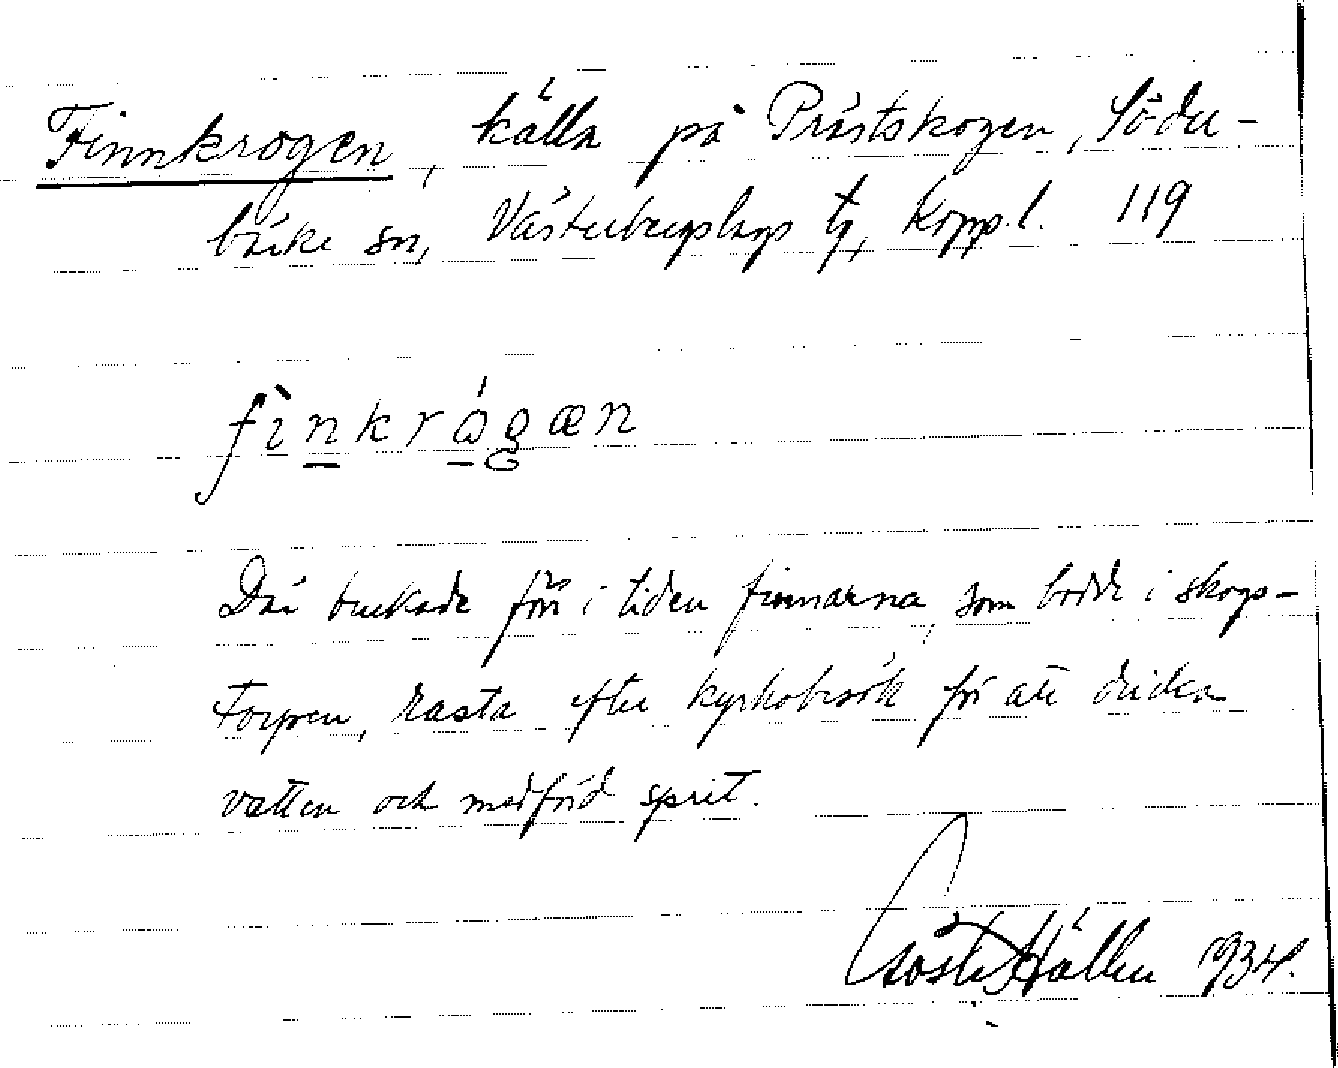 Finnkrogen, källa på Prästskogen, Söder-
bärke sn, Västerbergslags tg, Kopp. l. 119
finkrogæn
Där brukade förr i tiden finnarna, som bodde i skogs-
torpen, rasta efter kyrkobesök för att dricka
vatten och medförd sprit.
Gösta Hallén 1934.